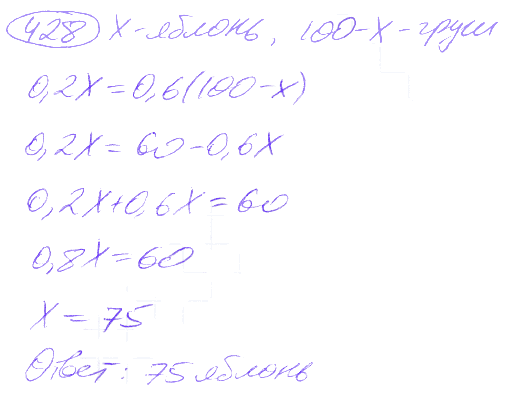 428 x - яблонь, 100-x - груш
0,2x=0,6(100-x)
0,2x=60-0,6x
0,2x+0,6x=60
0,8x=60
x=75
Ответ: 75 яблонь